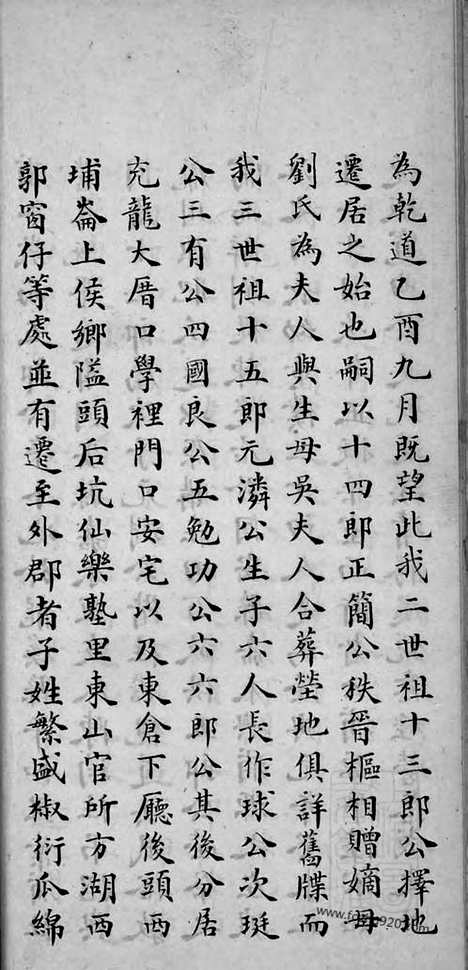 為乾道乙酉九月既望此我二世祖十三郎公擇地
遷居之始也嗣以十四郎正簡公秩晉樞相贈嫡母
劉氏為夫人與生母吳夫人合葬塋地俱詳舊牒而
我三世祖十五郎元潾公生子六人長作球公次珽
公三有公四國良公五勉功公六六郎公其後分居
充龍大厝口學裡門口安宅以及東倉下廳後頭西
埔崙上侯鄉隘頭后坑仙樂塾里東山官所方湖西
郭窗仔等處並有遷至外郡者子姓繁盛椒衍瓜綿